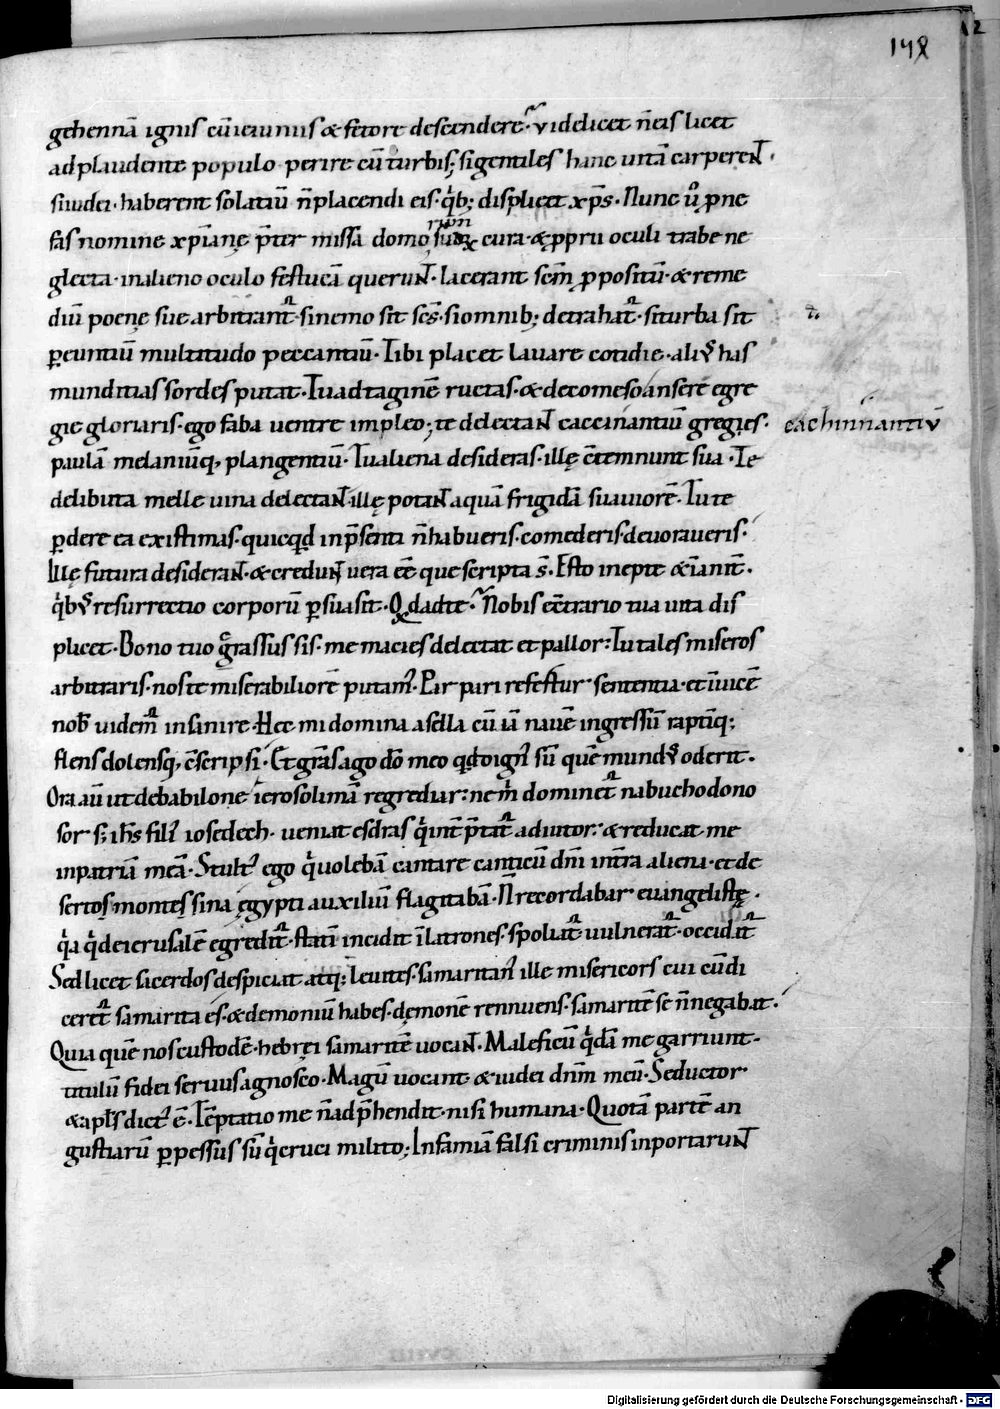 148
gehennā ignis cū ieiuniis & fetore descendere. videlicet n̄ eis licet
ad plaudente populo perire cū turbis; si gentiles hanc uitā carperent.
si iudei. haberent solatiū n̄ placendi eis. qͥb; displicet xp̄s. Nunc ů ꝓ ne
fas nomine xp̄iane p̄ter missa domoꝝ suaꝝ cura. & ꝓprii oculi trabe ne
glecta. in alieno oculo festucā querunt. lacerant scm̄ ꝓpositū. & reme
diū poenę sue arbitrant᷑. si nemo sit scs̄. si omnib; detrahat᷑. si turba sit
ꝑeuntiū multitudo peccantiū. Tibi placet lauare cotidie. aliꝰ has
munditias sordes putat. Tu adtaginē ructas. & de comeso ansere egre
gie gloriaris. ego faba uentre impleo; te delectant caccinantiū gregįes.
cachinnantiū
paulā melaniūq, plangentiū. Tu aliena desideras. illę c̄temnunt sua. Te
delibuta melle uina delectant. illę potant aquā frigidā suauiorē. Tu te
ꝑdere ea existimas. quicqd in p̄senti n̄ habueris. comederis. deuoraueris.
Illę futura desiderant. & credunt uera eē que scripta s̄. Esto inepte & ianit̄.
qͥbꝰ resurrectio corporū ꝑsuasit. Qd ad te. Nobis ec̄trario tua uita dis
plicet. Bono tuo grassus sis. me macies delectat et pallor: Tu tales miseros
arbitraris. nos te miserabiliorē putamꝰ. Par pari refertur sententia. et īuicē
nob̄ uidem᷑ insanire. Hec mi domina asella cū iā nauē ingressū raptiq;
flens dolensq, c̄scripsi. Et gr̄as ago dō meo qd dignꝰ sū quē mundꝰ oderit.
Ora aū ut de babilone ierosolimā regrediar: ne m̄ dominet᷑ nabuchodono
sor s; ih̄s filiꝰ iosedech. ueniat esdras qͥ int̄p̄tat᷑ adiutor. & reducat me
in patriā meā. Stultꝰ ego qͥ uolebā cantare canticū dn̄i in tr̄a aliena. et de
sertos montes sina ęgypti auxiliū flagitabā. N̄ recordabar euangelistę.
qͣ qͥ de ierusalē egredit᷑. statī incidit ī latrones. spoliat᷑ uulnerat᷑. occidit᷑
Sed licet sacerdos despiciat atq: leuites. samaritanꝰ ille misericors cui cū di
ceret᷑ samarita es. & demoniū habes. demonē rennuens. samaritē se n̄ negabat.
Quia quē nos custodē. hebrei samaritē uocant. Maleficū qͥdā me garriunt.
titulū fidei seruus agnosco. Magū uocant & iudei dn̄m meū. Seductor
& apl̄s dictꝰ ē. Tēptatio me n̄ adp̄hendit. nisi humana. Quotā partē an
gustiarū ꝑpessus sū qͥ cruci milito; Infamiā falsi criminis inportarunt